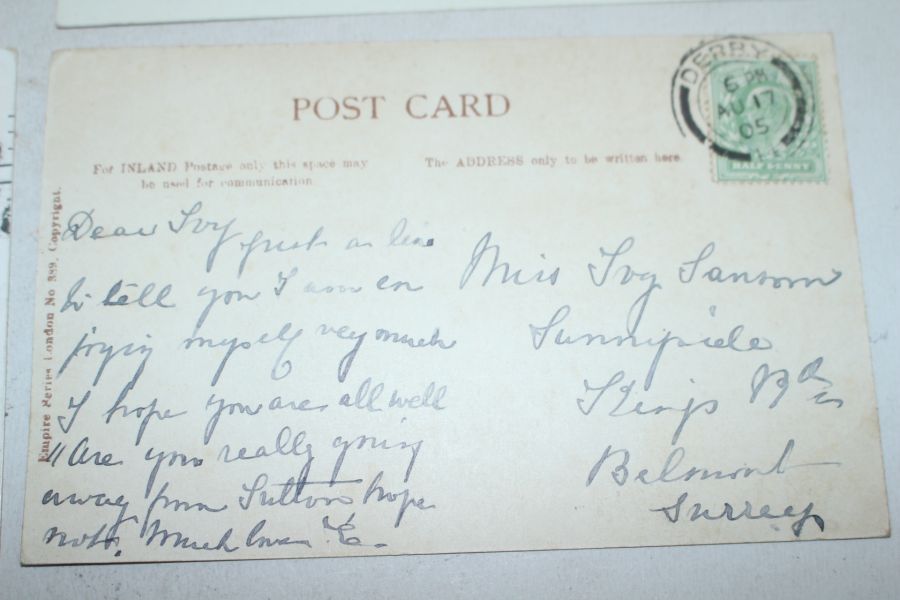 POST CARD
For INLAND Postage only this space may
be used for communication.
The ADDRESS only to be written here.
DERBY
6 PM
AU 17
05
HALF PENNY
Empire Series London No 339. Copyright.
Dear Ivy just a line
to tell you I am en
joying myself very much
I hope you are all well
"Are you really going
away from Sutton hope
not. Much love E.
Miss Ivy Sansom
Sunnyside
Kings Rd
Belmont
Surrey